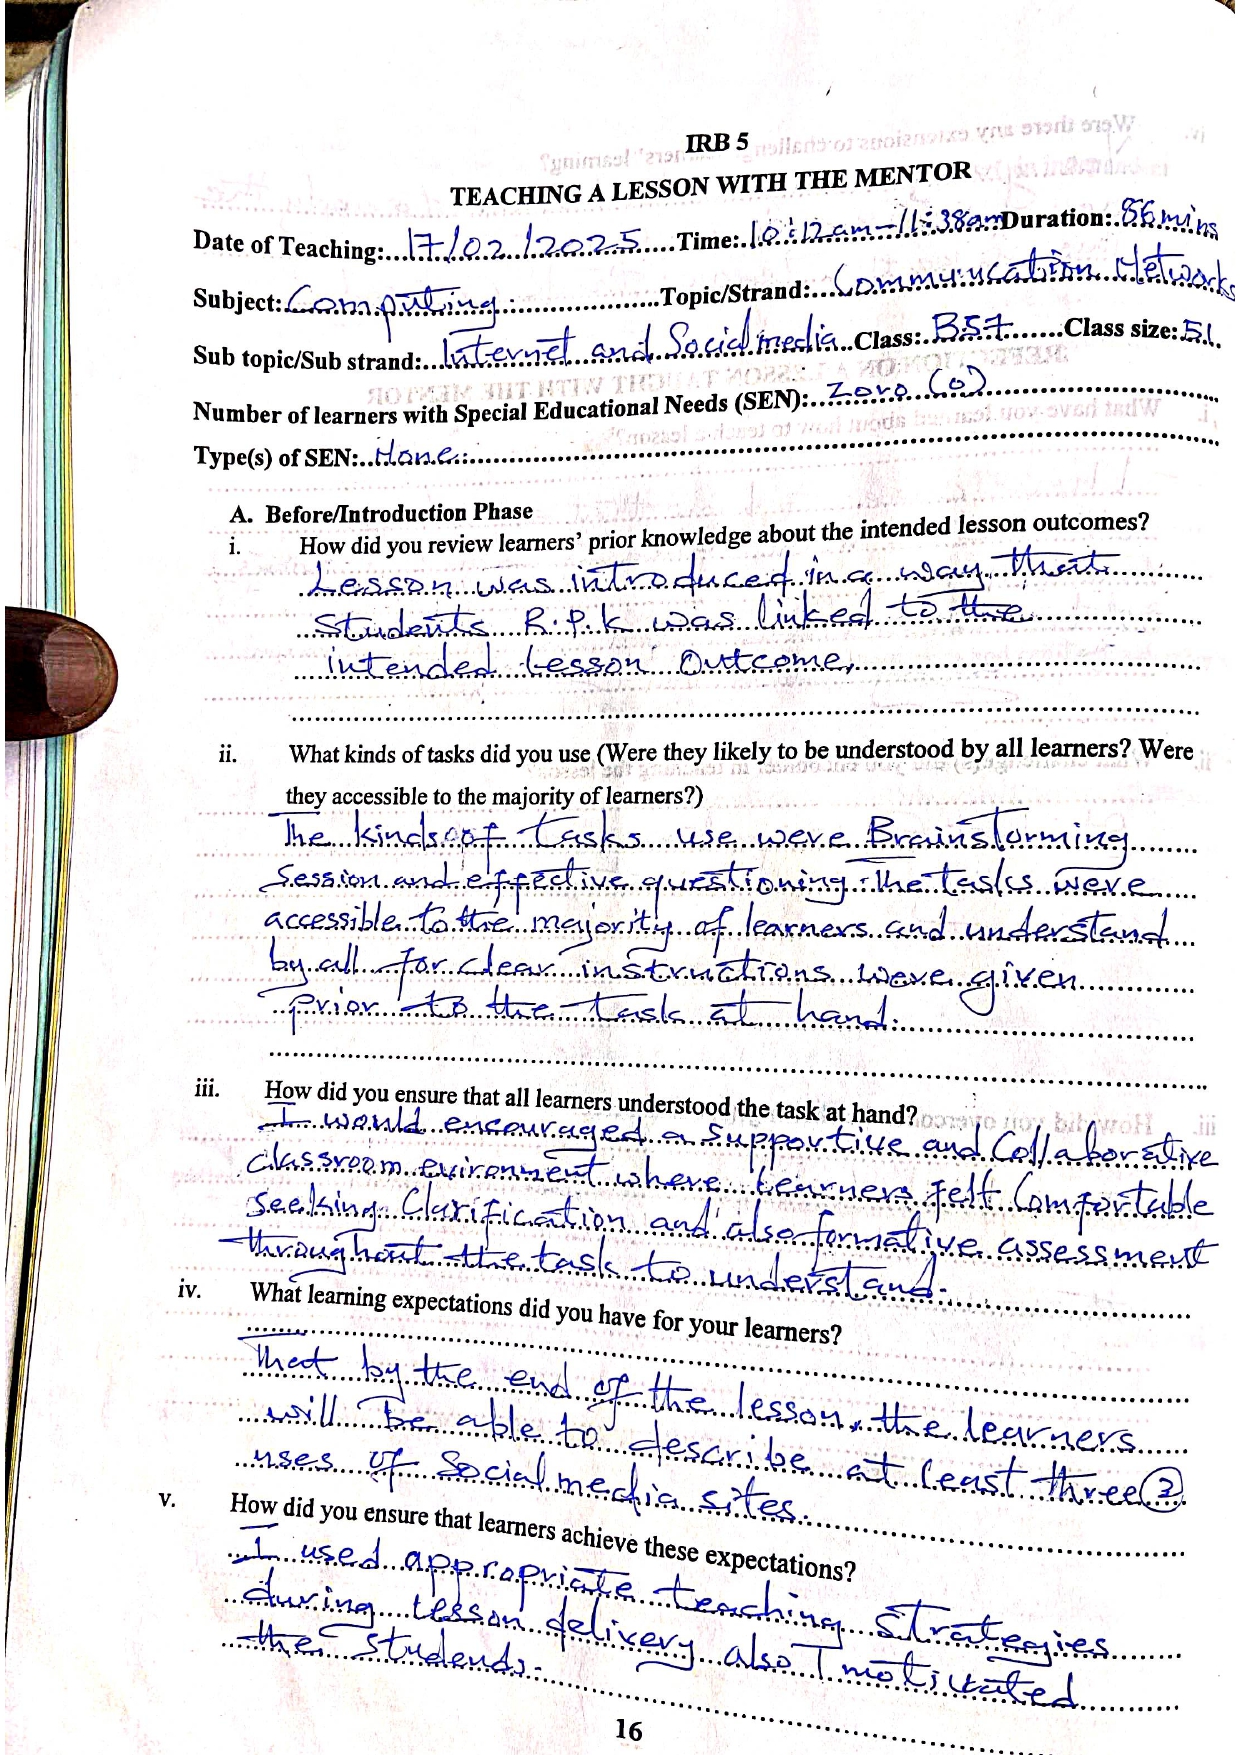 IRB 5
TEACHING A LESSON WITH THE MENTOR
Date of Teaching:...17/02/2025.....Time:..10:12am-11:38am Duration:..86mins
Subject: Computing...................Topic/Strand:...Communication Networks
Sub topic/Sub strand:...Internet and Social media..Class:..BS7.......Class size:51.
Number of learners with Special Educational Needs (SEN):...Zero (0)
Type(s) of SEN:..None
A. Before/Introduction Phase
i. How did you review learners' prior knowledge about the intended lesson outcomes?
Lesson was introduced in a way that
Students R.P.K was linked to the
intended Lesson Outcome,
ii. What kinds of tasks did you use (Were they likely to be understood by all learners? Were
they accessible to the majority of learners?)
The kinds of tasks use were Brainstorming
Session and effective questioning. The tasks were
accessible to the majority of learners and understand
by all for clear instructions were given
prior to the task at hand.
iii. How did you ensure that all learners understood the task at hand?
I would encouraged a supportive and Collaborative
classroom evironment where Learners felt Comfortable
Seeking Clarification and also formative assessment
throughout the task to understand.
iv. What learning expectations did you have for your learners?
That by the end of the lesson, the learners
will be able to describe at least three (3)
uses of Social media sites.
v. How did you ensure that learners achieve these expectations?
I used appropriate teaching strategies
during Lesson delivery also I motivated
the Students.
16